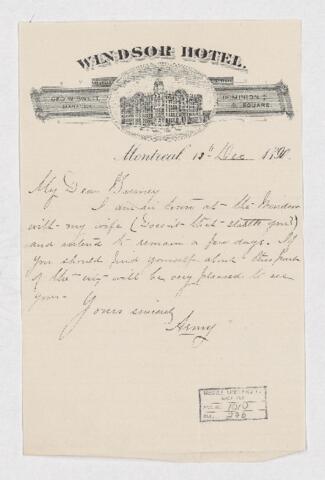 WINDSOR HOTEL.
GEO. W. SWETT,
MANAGER.
DOMINION
SQUARE.
Montreal, 12th Dec 1890
My Dear
I am in town at the Windsor
with my wife (Doesn't that startle you?)
and intend to remain a few days. If
you should find yourself about this part
of the city will be very pleased to see
you.
Yours sincerely